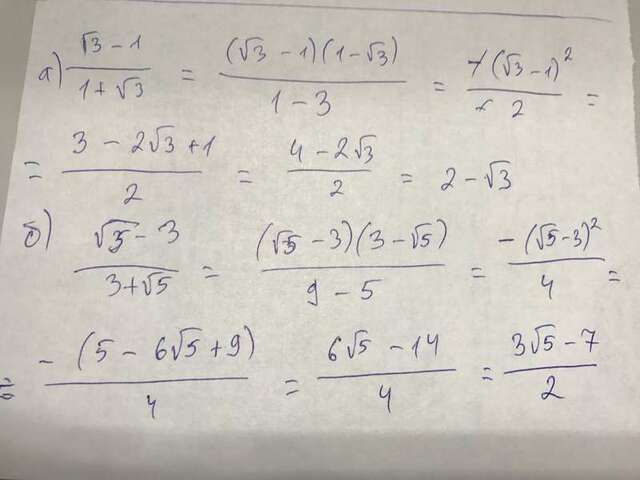 а) (√3 − 1)/(1 + √3) = ((√3 − 1)(1 − √3))/(1 − 3) = (−(√3 − 1)²)/(− 2) =
= (3 − 2√3 + 1)/2 = (4 − 2√3)/2 = 2 − √3
б) (√5 − 3)/(3 + √5) = ((√5 − 3)(3 − √5))/(9 − 5) = (−(√5 − 3)²)/4 =
= (−(5 − 6√5 + 9))/4 = (6√5 − 14)/4 = (3√5 − 7)/2